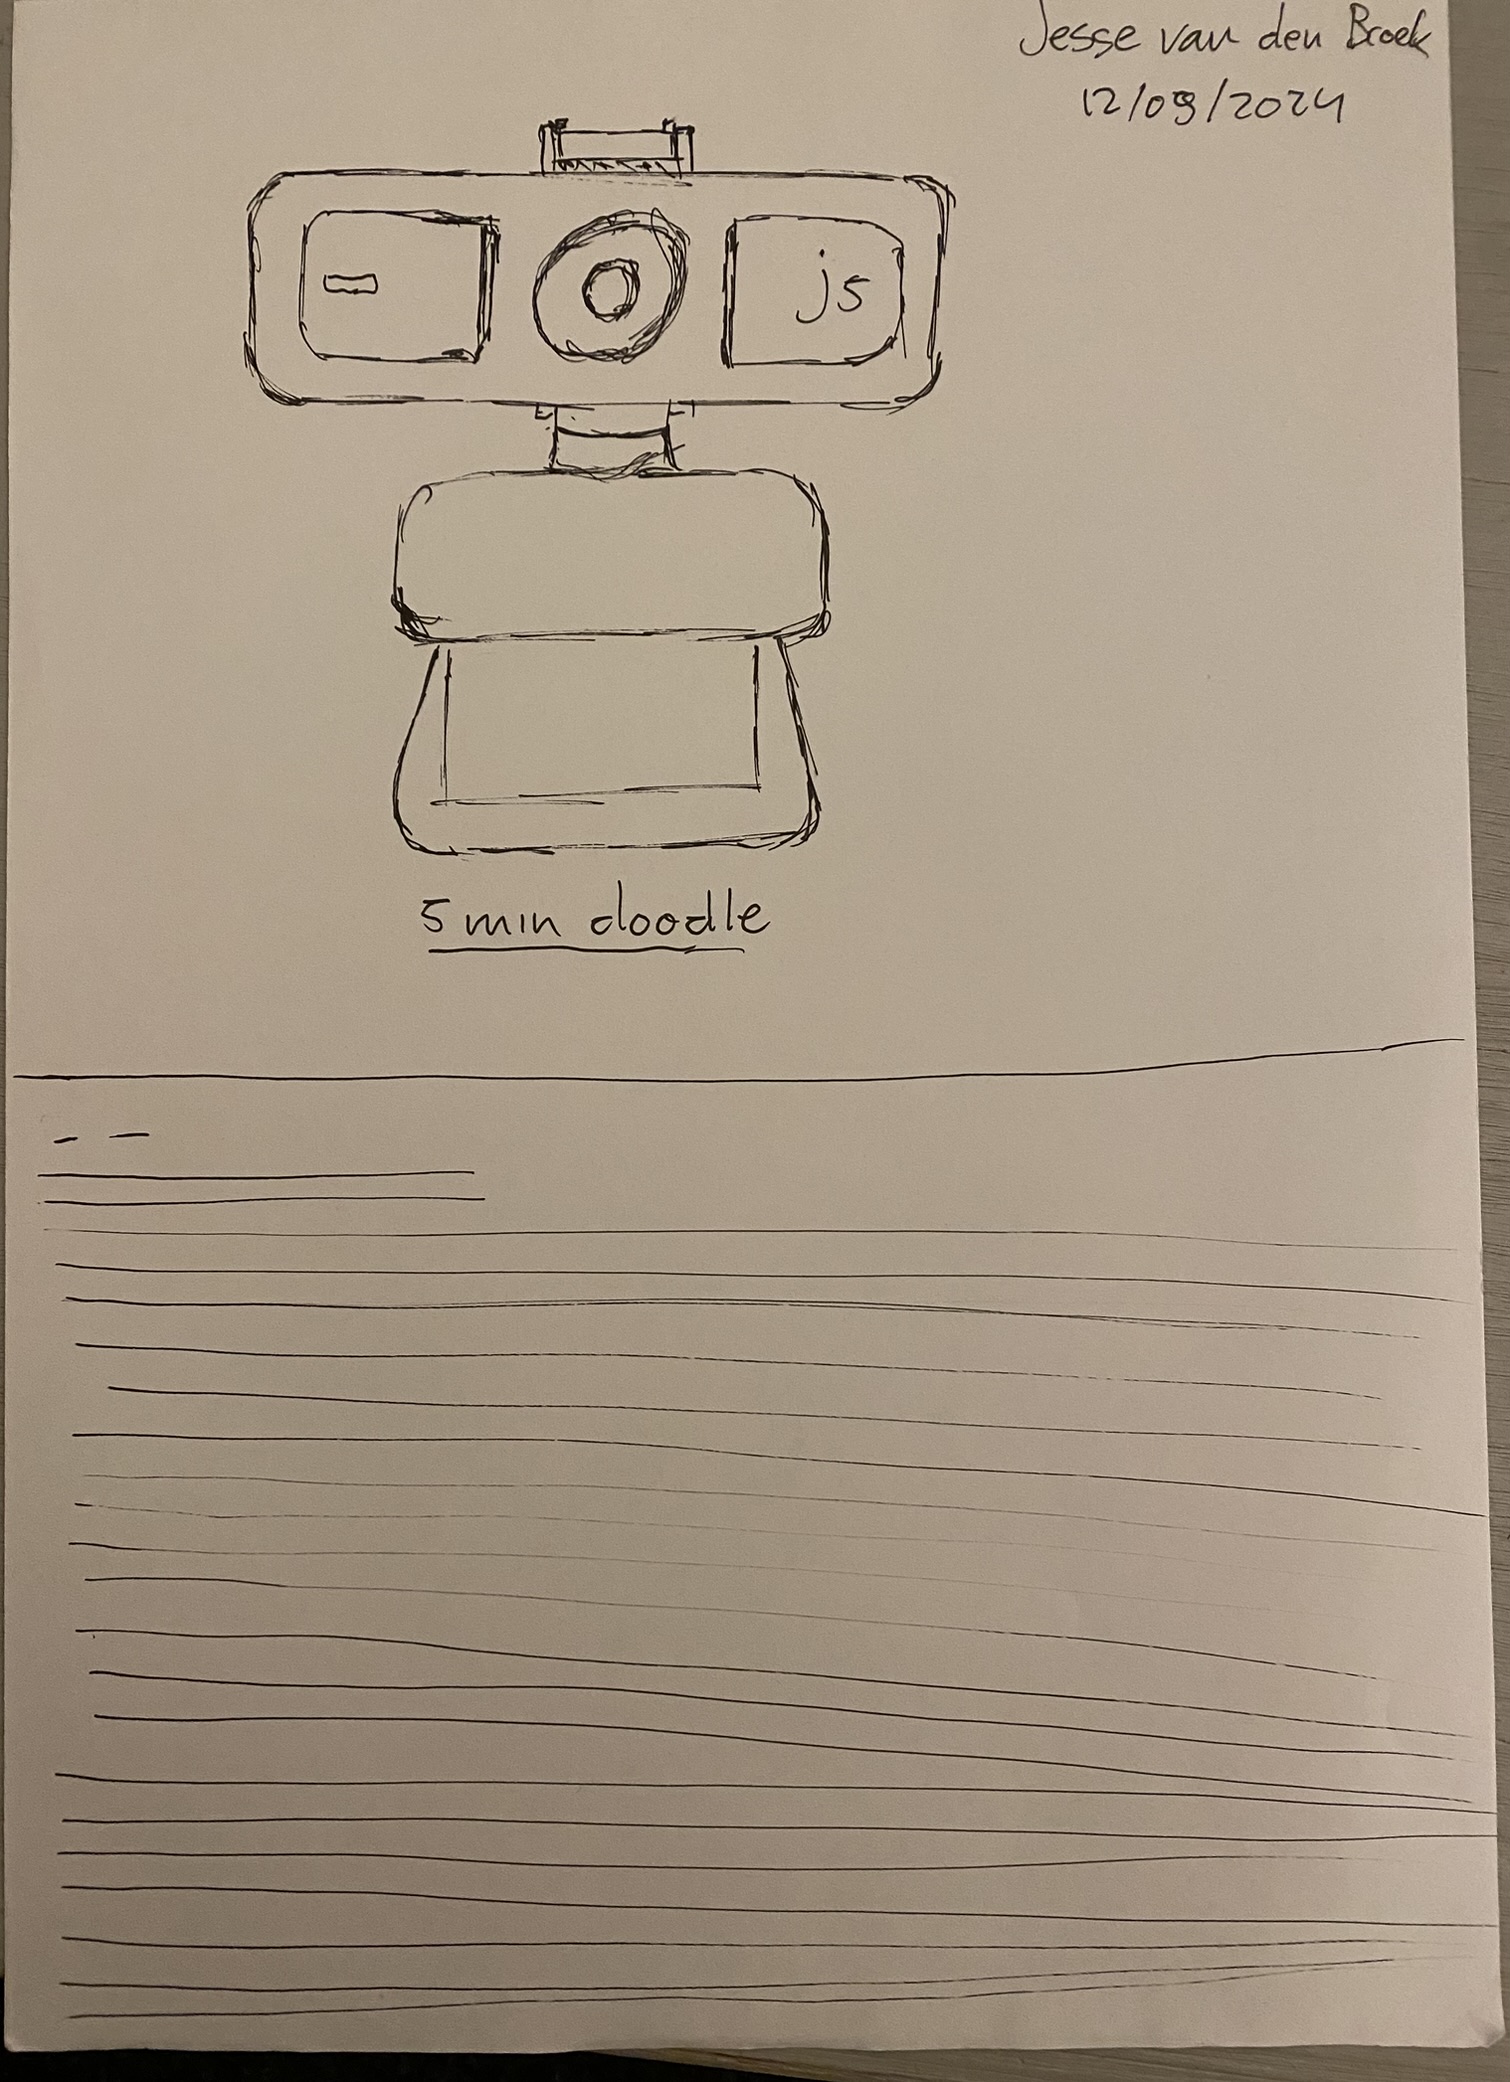 Jesse van den Broek
12/09/2024
js
5 min doodle